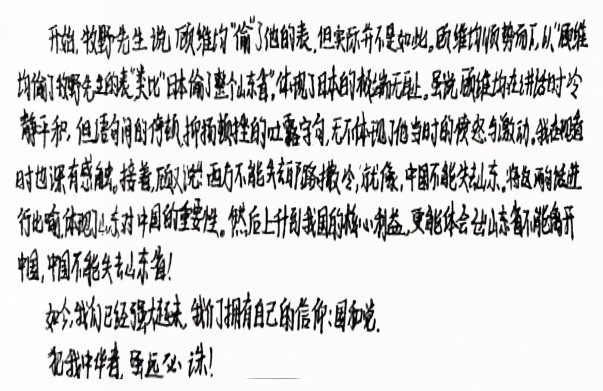 开始,牧野先生说顾维均"偷"了他的表,但实际并不是如此。顾维均顺势而下,从"顾维
均偷了牧野先生的表"类比"日本偷了整个山东省",体现了日本的极端无耻。虽说顾维均在讲话时冷
静平和,但语句间的停顿,抑扬顿挫的吐露字句,无不体现了他当时的愤怒与激动。我在观看
时也深有感触。接着,顾又说:西方不能失去耶路撒冷,就像,中国不能失去山东。将这两句话进
行比喻,体现了山东对中国的重要性。然后上升到我国的核心利益,更能体会出山东省不能离开
中国,中国不能失去山东省!
如今,我们已经强大起来,我们拥有自己的信仰:国和党.
犯我中华者,虽远必诛!